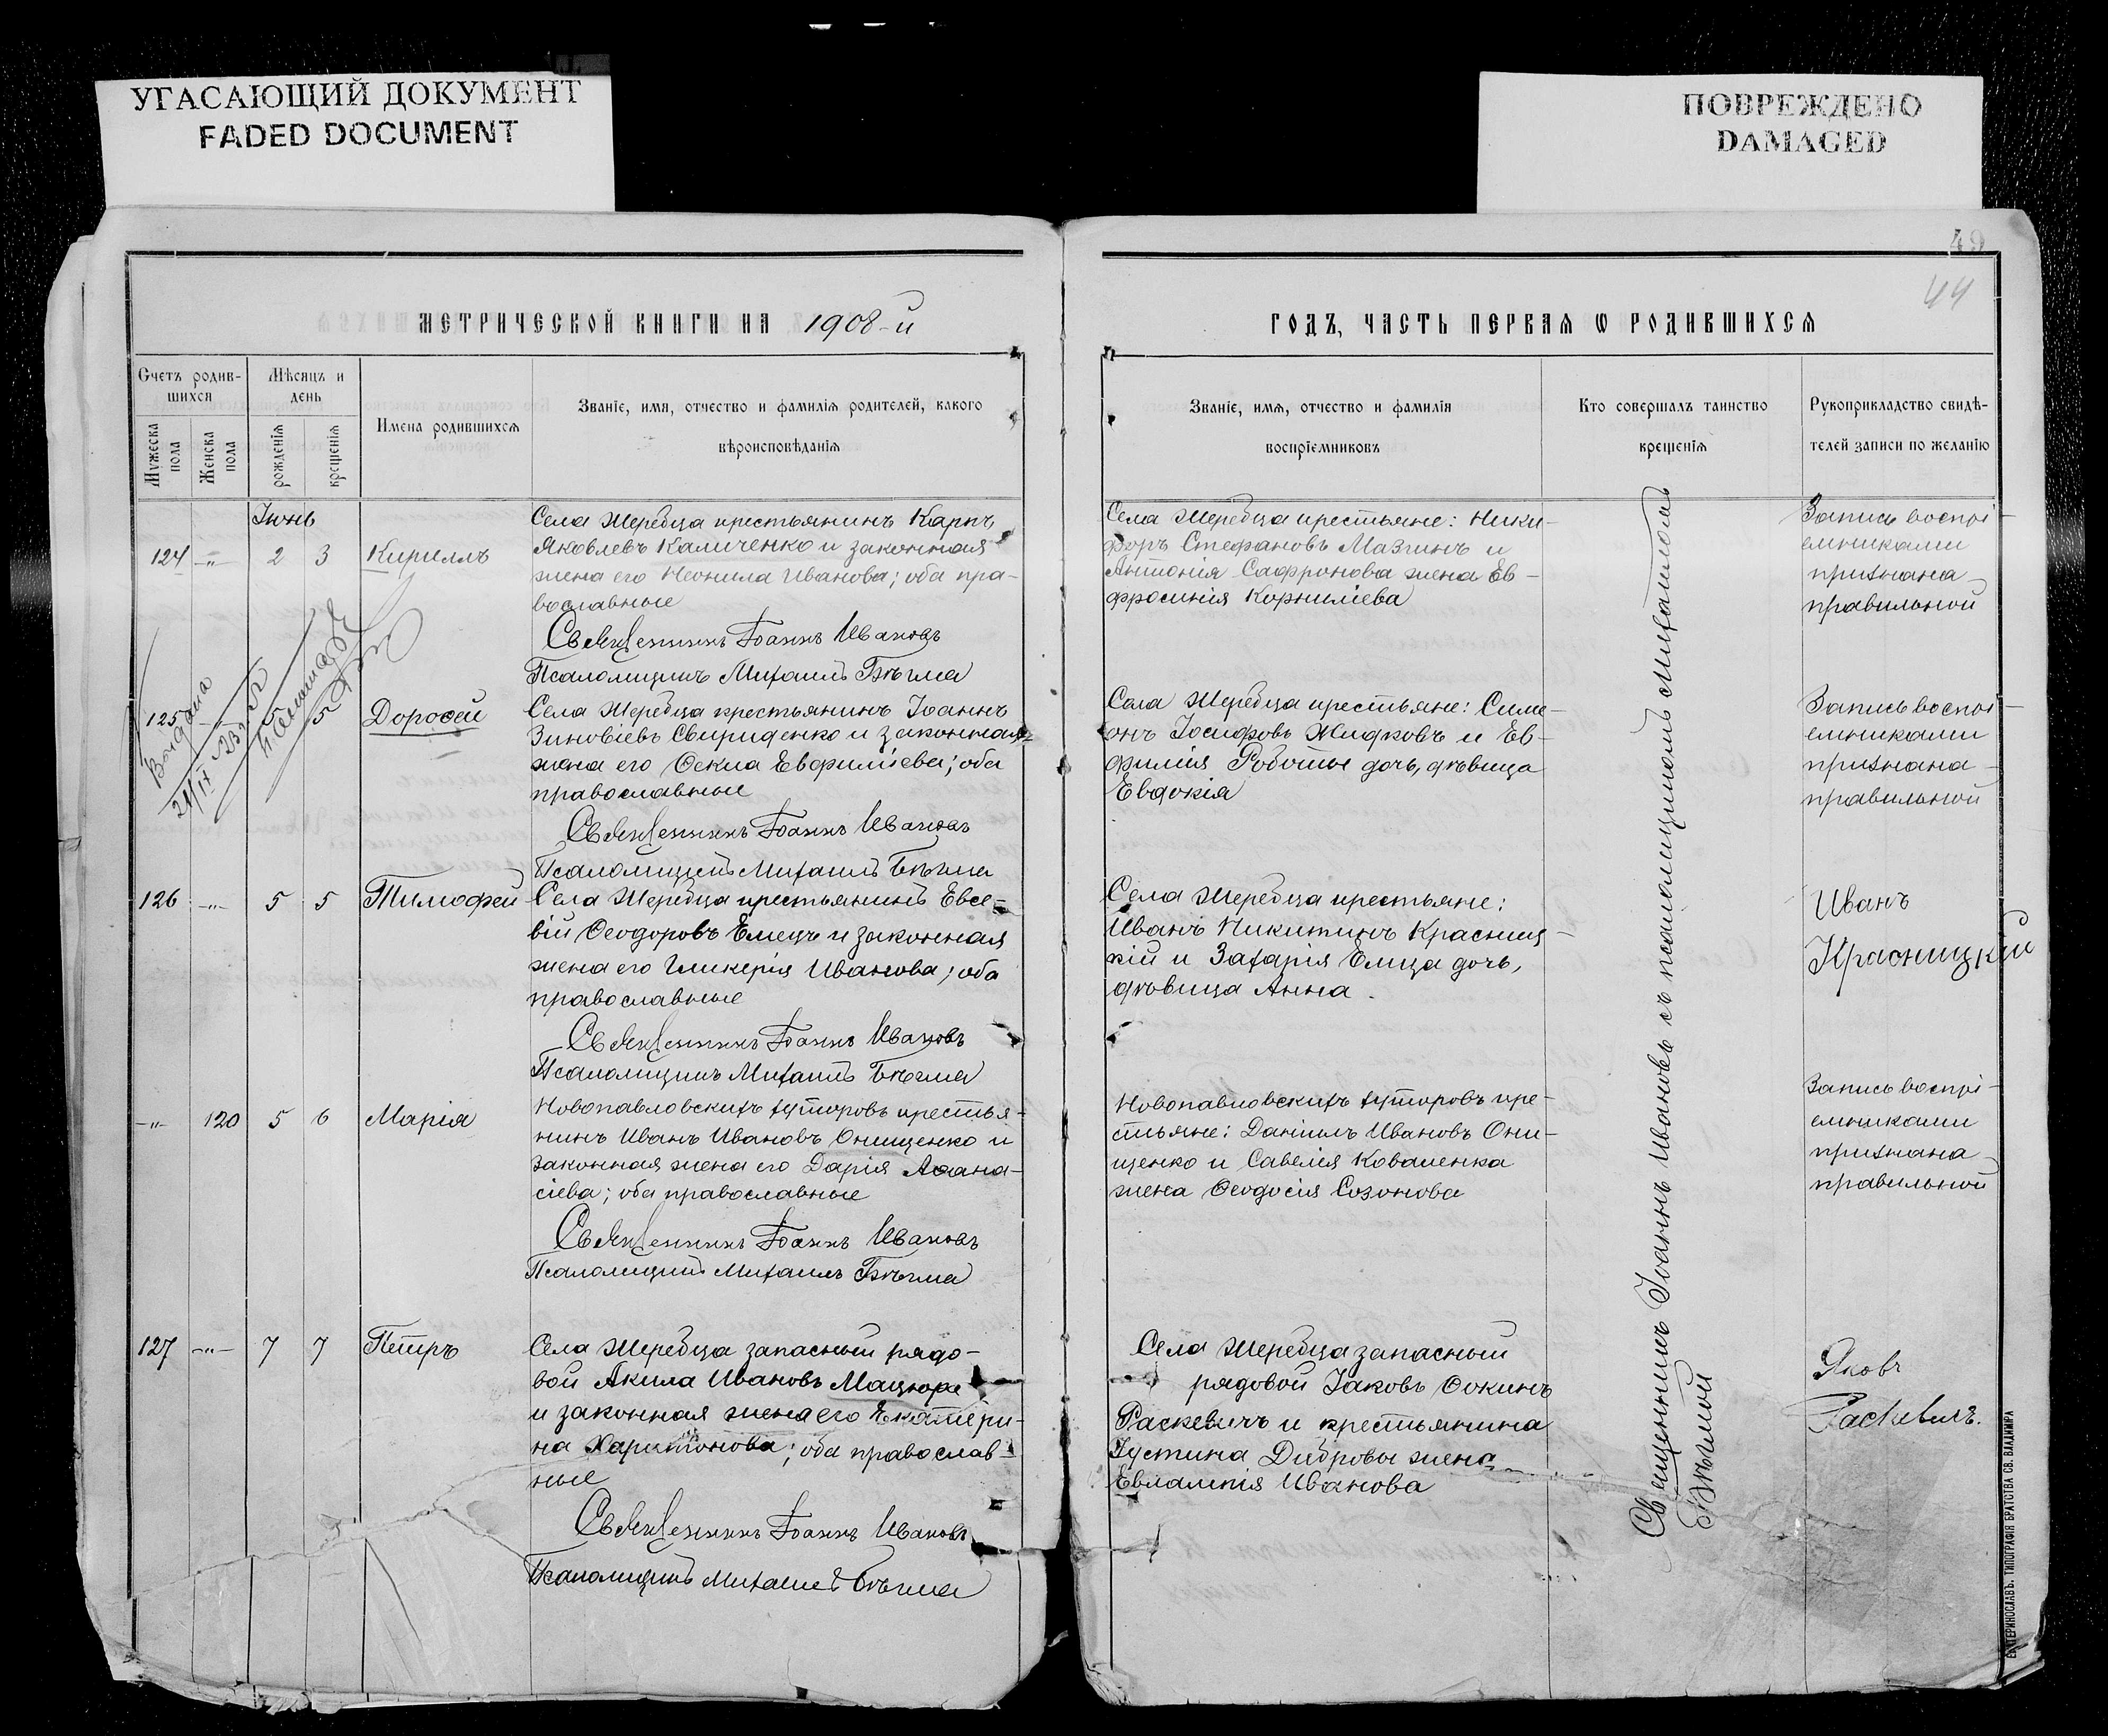 УГАСАЮЩИЙ ДОКУМЕНТ
FADED DOCUMENT
ПОВРЕЖДЕНО
DAMAGED
49
44
МЕТРИЧЕСКОЙ КНИГИ НА 1908-й
ГОДЪ, ЧАСТЬ ПЕРВАѦ Ѡ РОДИВШИХСѦ
Счетъ родив-
шихся
Мѣсяцъ и
день
Мужеска
пола
Женска
пола
рожденія
крещенія
Имена родившихсѧ
Званіе, имя, отчество и фамилія родителей, какого
вѣроисповѣданія
Званіе, имя, отчество и фамилія
воспріемниковъ
Кто совершалъ таинство
крещенія
Рукоприкладство свидѣ-
телей записи по желанію
Іюнь
124 -"- 2 3 Кириллъ
Села Жеребца крестьянинъ Карпъ
Яковлевъ Каличенко и законная
жена его Неонила Иванова; оба пра-
вославные
Священникъ Іоаннъ Ивановъ
Псаломщикъ Михаилъ Бѣгма
Села Жеребца крестьяне: Ники-
форъ Стефановъ Мазчинъ и
Антонія Сафронова жена Ев-
фросинія Корниліева
Запись воспрі-
емниками
признана
правильной
125 5 5 Дороѳей
Выдана
21/IX
Села Жеребца крестьянинъ Іоаннъ
Зиновіевъ Свириденко и законная
жена его Ѳекла Евфиміева; оба
православные
Священникъ Іоаннъ Ивановъ
Псаломщикъ Михаилъ Бѣгма
Села Жеребца крестьяне: Симе-
онъ Іосифовъ Жидковъ и Ев-
фимія Роботы дочь, дѣвица
Евдокія
Запись воспрі-
емниками
признана
правильной
126 -"- 5 5 Тимофей
Села Жеребца крестьянинъ Евсе-
вій Ѳеодоровъ Емецъ и законная
жена его Гликерія Иванова; оба
православные
Священникъ Іоаннъ Ивановъ
Псаломщикъ Михаилъ Бѣгма
Села Жеребца крестьяне:
Иванъ Никитинъ Красниц-
кій и Захарія Емца дочь,
дѣвица Анна.
Иванъ
Красницкій
-"- 120 5 6 Марія
Новопавловскихъ хуторовъ крестья-
нинъ Иванъ Ивановъ Онищенко и
законная жена его Дарія Аѳана-
сіева; оба православные
Священникъ Іоаннъ Ивановъ
Псаломщикъ Михаилъ Бѣгма
Новопавловскихъ хуторовъ кре-
стьяне: Даніилъ Ивановъ Они-
щенко и Савелія Коваленка
жена Ѳеодосія Созонова
Запись воспрі-
емниками
признана
правильной
127 -"- 7 7 Петръ
Села Жеребца запасный рядо-
вой Акила Ивановъ Мацюра
и законная жена его Екатери-
на Харитонова; оба православ-
ные
Священникъ Іоаннъ Ивановъ
Псаломщикъ Михаилъ Бѣгма
Села Жеребца запасный
рядовой Іаковъ Ѳокинъ
Раскевичъ и крестьянина
Іустина Дибровы жена
Евлампія Иванова
Яковъ
Раскевичъ.
Священникъ Іоаннъ Ивановъ съ псаломщикомъ Михаиломъ
Бѣгмой
ЕКАТЕРИНОСЛАВЪ. ТИПОГРАФІЯ БРАТСТВА СВ. ВЛАДИМІРА